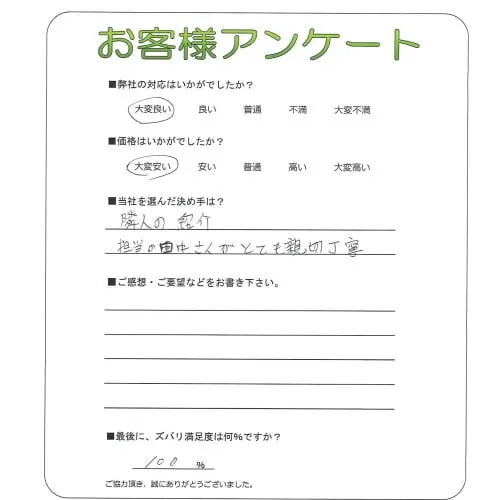 お客様アンケート
■弊社の対応はいかがでしたか？
大変良い 良い 普通 不満 大変不満
■価格はいかがでしたか？
大変安い 安い 普通 高い 大変高い
■当社を選んだ決め手は？
隣人の紹介
担当の田中さんがとても親切丁寧
■ご感想・ご要望などをお書き下さい。
■最後に、ズバリ満足度は何%ですか？
100 %
ご協力頂き、誠にありがとうございました。